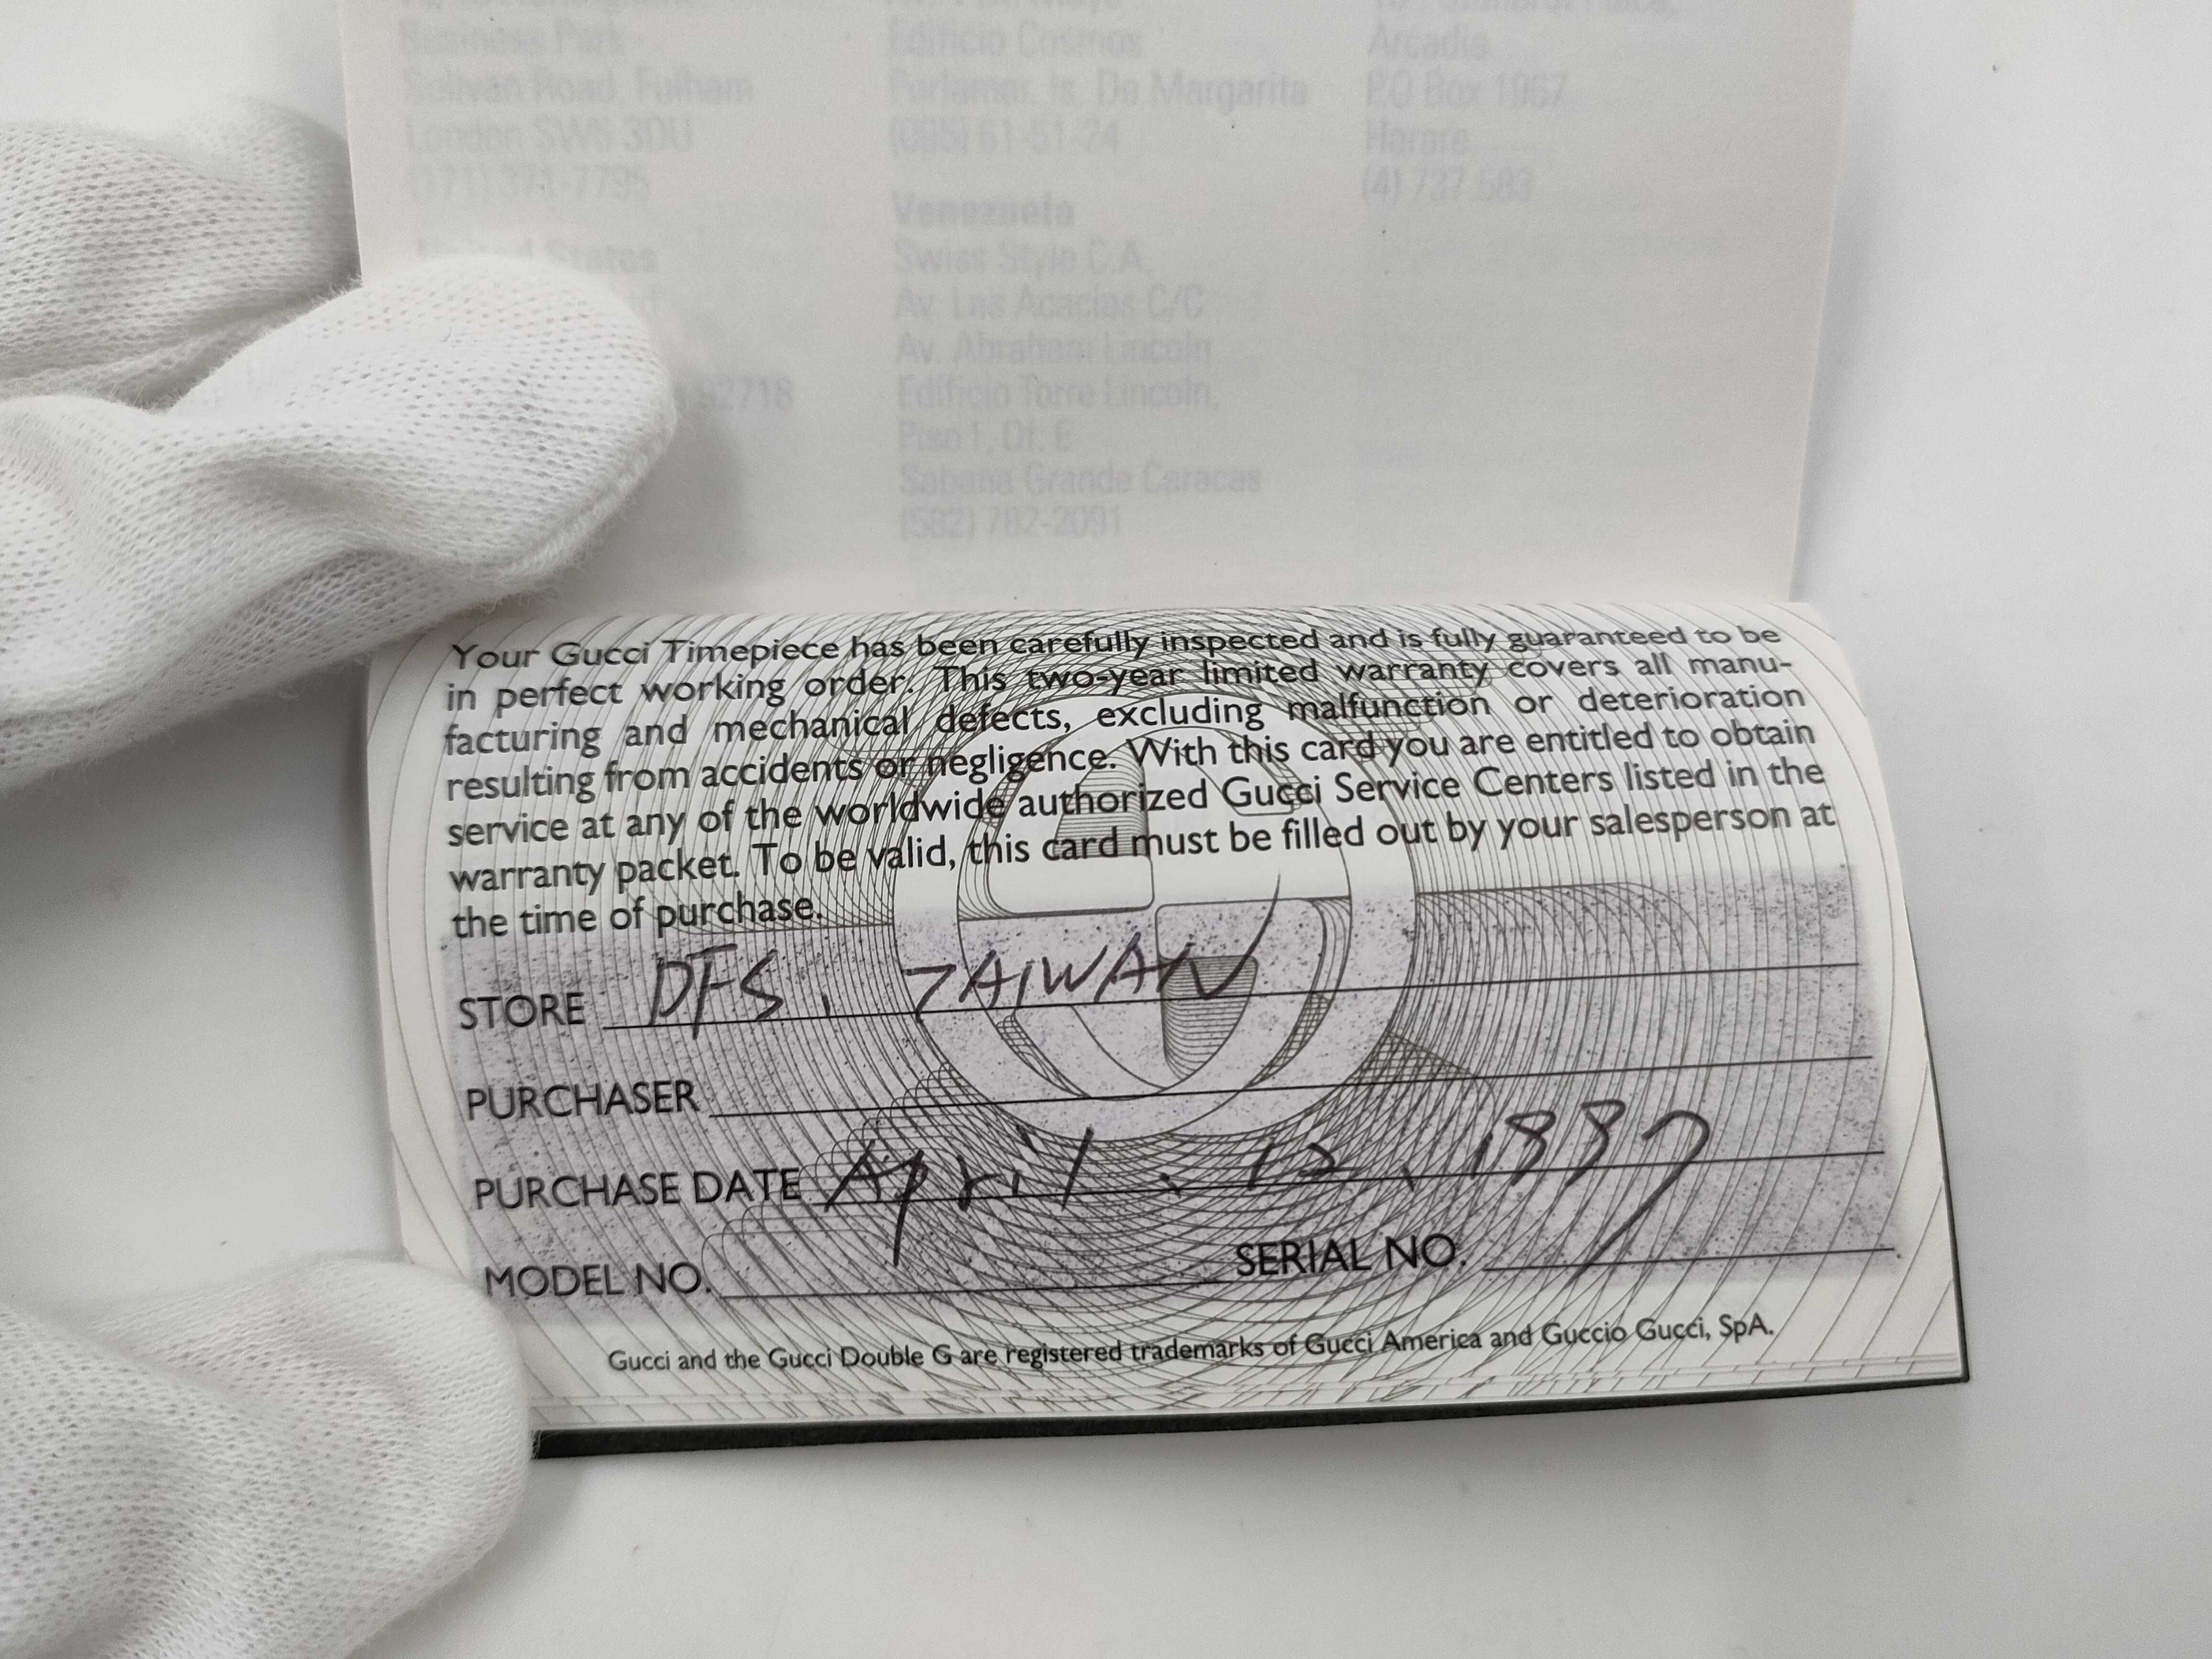 Business Park
Sulivan Road, Fulham
London SW6 3DU
(171) 371-7795
United States
92718
Edificio Cosmos
Porlamar, Is. De Margarita
(095) 61-51-24
Venezuela
Swiss Style C.A.
Av. Las Acacias C/C
Av. Abraham Lincoln
Edificio Torre Lincoln,
Piso 1, Of. E
Sabana Grande Caracas
(582) 782-2091
Arcadia
P.O Box 1967
Harare
(4) 737 583
Your Gucci Timepiece has been carefully inspected and is fully guaranteed to be
in perfect working order. This two-year limited warranty covers all manu-
facturing and mechanical defects, excluding malfunction or deterioration
resulting from accidents or negligence. With this card you are entitled to obtain
service at any of the worldwide authorized Gucci Service Centers listed in the
warranty packet. To be valid, this card must be filled out by your salesperson at
the time of purchase.
STORE DFS, TAIWAN
PURCHASER
PURCHASE DATE April, 12, 1997
MODEL NO. SERIAL NO.
Gucci and the Gucci Double G are registered trademarks of Gucci America and Guccio Gucci, SpA.